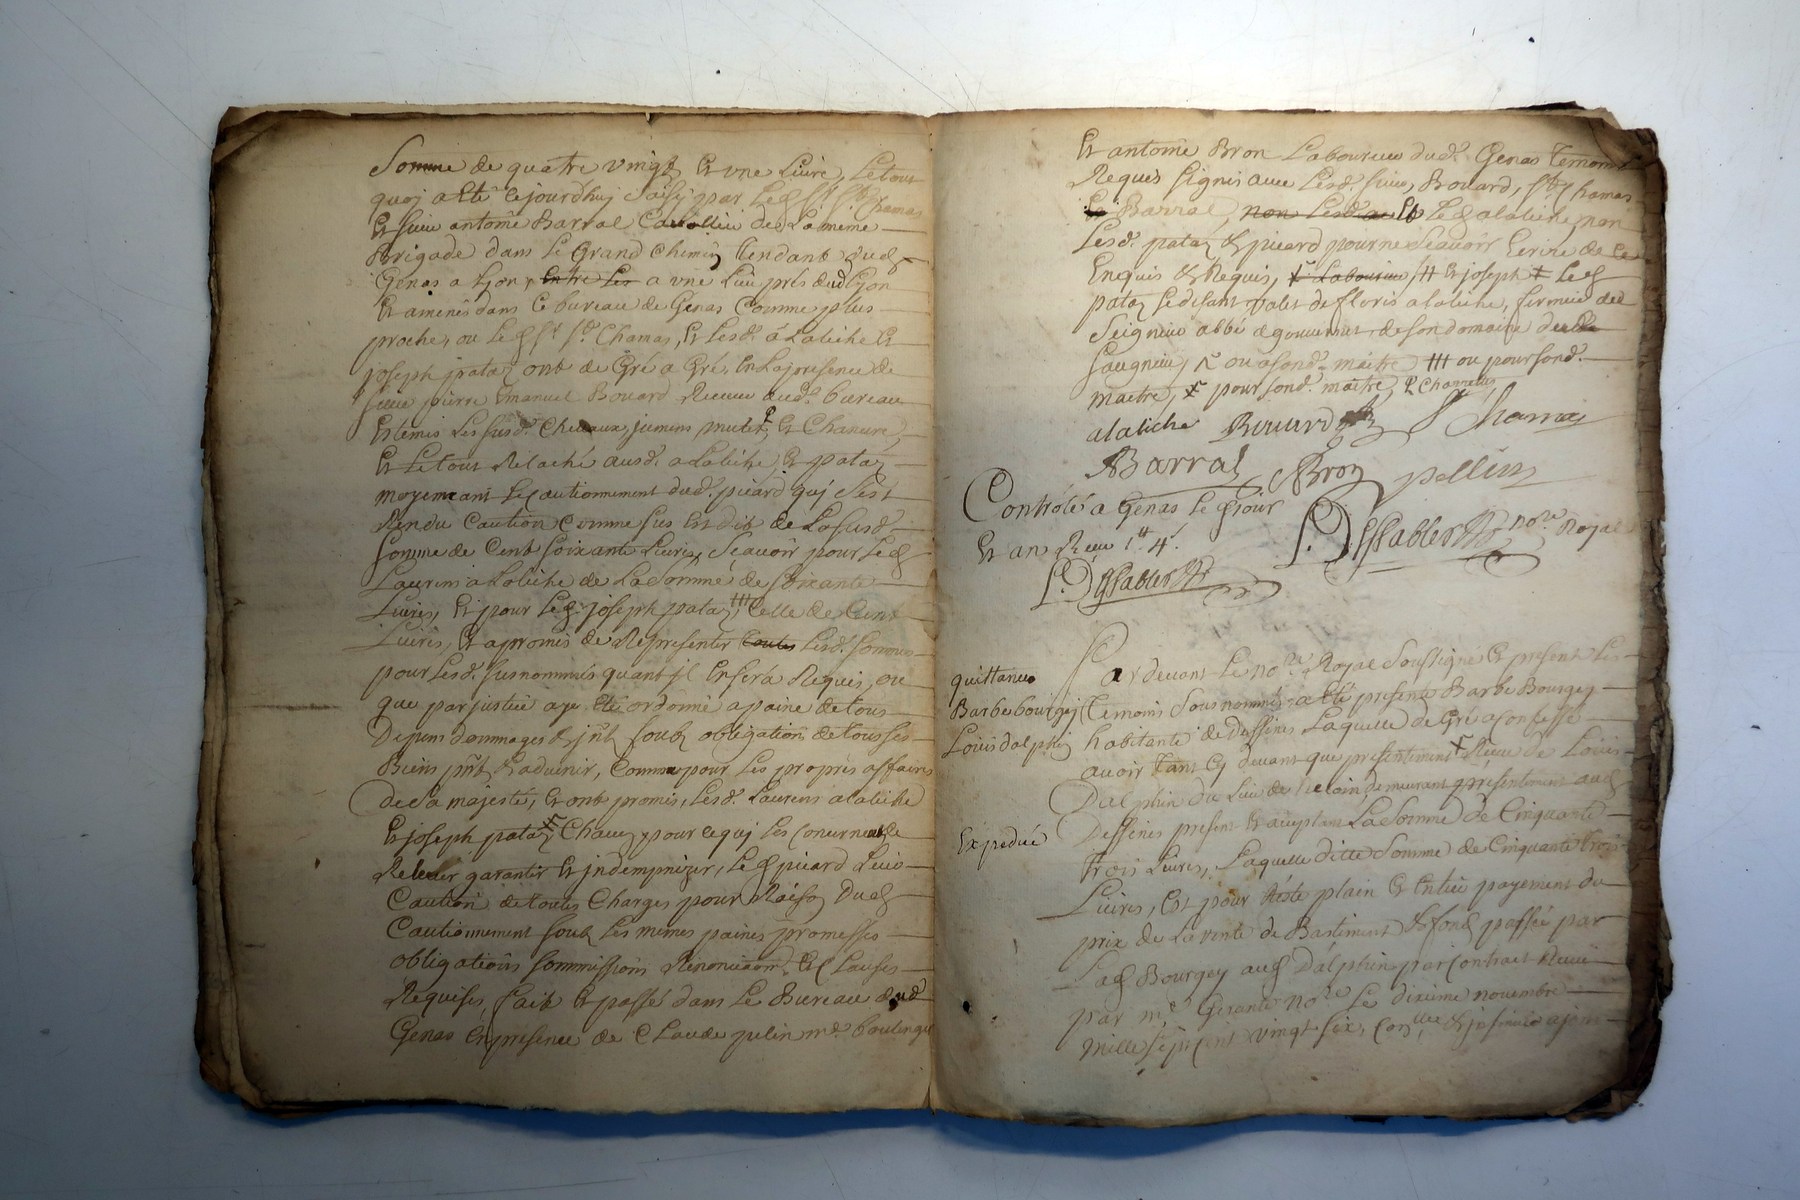 Somme de quatre vingt et une Livre, Le tout
quoj a eté cejourdhuj Saisy par Led Sr. St. Chamas
Et sieur antoine Barral Cavallier de La meme
Brigade dans Le Grand Chemin tendant dud
Genas a Lyon, entre Les a une Lieu prés dud Lyon
Et amenés dans Ce bureau de Genas Comme plus
proche, ou Led Sr. St. Chamas, Et Lesd. alatiche Et
joseph pataz ont de Gré a Gré, En La presence de
sieur pierre Emanuel Bouard Receveur dud. bureau
Estemis Les susd. Chevaux, jumens, mulet, Et Chanvre,
Et Le tout Relaché ausd. alatiche, Et pataz
moyennant Le Cautionnement dud. picard quj s'est
Rendu Caution Comme sus Est dit de La susd.
somme de Cent soixante Livres, Scavoir pour Led
Laurens alatiche de La somme de soixante
Livres, Et pour Led joseph pataz ╫ Celle de Cent
Livres, Et a promis de Representer toutes Lesd. sommes
pour Lesd. susnommés quant jl En sera Requis, ou
que par justice aye Eté ordonné a paine de tous
Depens dommages & jnts. soub obligation de tous ses
Biens pnts. & advenir, Comme pour Les propres affaires
de Sa majesté, Et ont promis, Lesd. Laurens alatiche
Et joseph pataz Chacun pour ce quj Les Concerne de
Relever garantir Et jndempnizer, Led picard Leur
Caution de toutes Charges pour Raison Dud
Cautionnement soub Les memes paines promesses
obligations sommissions Renonciaons. & Clauses
Requises, fait Et passé dans Le Bureau dud
Genas En presence de Claude pelin md. boulenger
Et antoine Bron Laboureur dud. Genas temoins
Requis signés avec Lesd. sieurs Bouard, St. Chamas
Et Barral, non Lesd. Et Led alatiche, non
Lesd. pataz & picard pour ne Scavoir Ecrire de ce
Enquis & Requis, Laboureur ╫ Et joseph Led
pataz se disant valet de floris alatiche, fermier dud
Seigneur abbé de gouvernet de son domaine de
saugnieu, ou a sond. maitre ╫ ou pour sond.
maitre, pour sond. maitre, & Chanvre,
alatiche Bouard St Chamas
Barral ABron pellin
Controlé a Genas Le d jour
Et an Receu 1tt 4s.
P. Dessablet nore. Royal
P. Dessablet
quittance
Barbe bourgey
Louis dalphin
Expedié
Pardevant Le nore. Royal Soussigné Et present Les
temoins Sous nommés a eté presente Barbe Bourgey
habitante de Dessines Laquelle de Gré a Confessé
avoir tant Cy devant que presentement Receu de Louis
Dalphin du Lieu de demeurant presentement aud
Dessines present Et acceptant La Somme de Cinquante
trois Livres, Laquelle ditte Somme de Cinquante trois
Livres, Est pour Reste plain Et Entier payement du
prix de La vente de Bastiment & fond passée par
Lad Bourgey aud Dalphin par Contract Receu
par me. Gerante nore. Le dixieme novembre
mille sept cent vingt six, conllé & jnsinué